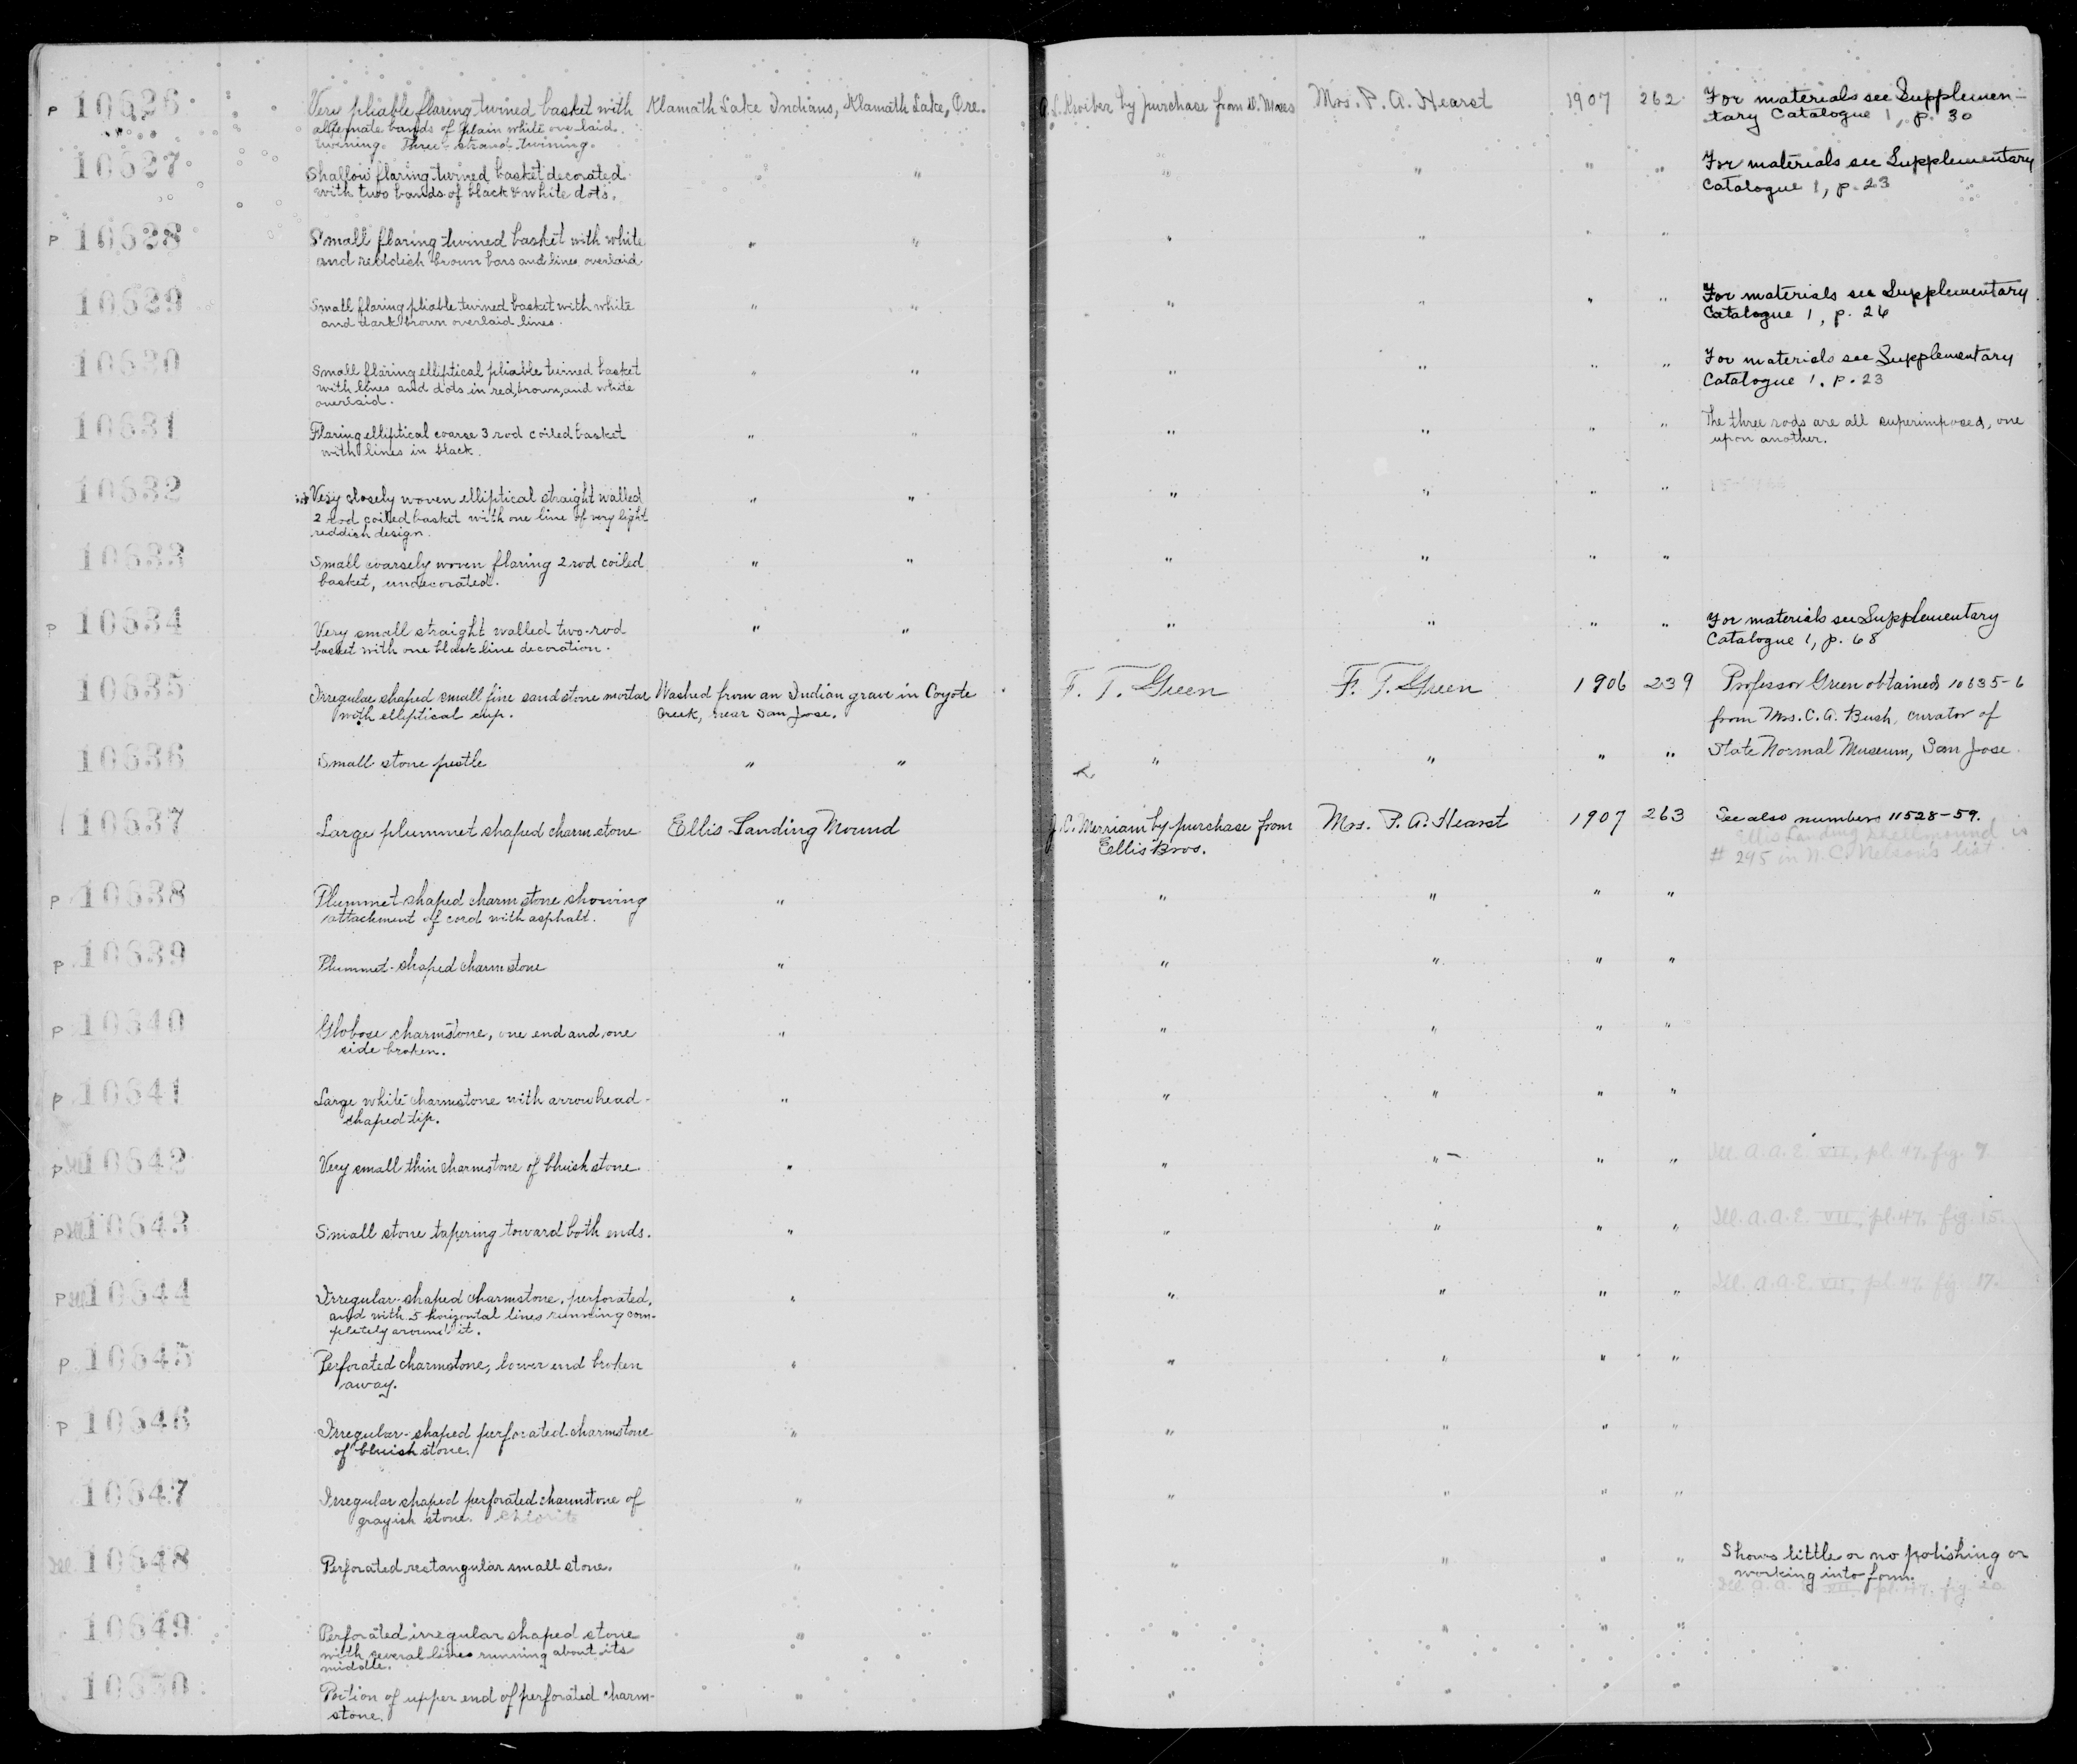 P 10626 Very pliable flaring twined basket with Klamath Lake Indians, Klamath Lake, Ore. A. L. Kroeber by purchase from D. Moses Mrs. P. A. Hearst 1907 262 For materials see Supplemen-
alternate bands of plain white overlaid tary Catalogue 1, p. 30
twining. Three-strand twining.
10627 Shallow flaring twined basket decorated " " " " " For materials see Supplementary
with two bands of black & white dots. Catalogue 1, p. 23
P 10628 Small flaring twined basket with white " " " " " "
and reddish brown bars and lines overlaid
10629 Small flaring pliable twined basket with white " " " " " " For materials see Supplementary
and dark brown overlaid lines. Catalogue 1, p. 26
10630 Small flaring elliptical pliable twined basket " " " " " " For materials see Supplementary
with lines and dots in red, brown, and white Catalogue 1. p. 23
overlaid.
10631 Flaring elliptical coarse 3 rod coiled basket " " " " " " The three rods are all superimposed, one
with lines in black. upon another.
10632 Very closely woven elliptical straight walled " " " " " "
2 rod coiled basket with one line of very light
reddish design.
10633 Small coarsely woven flaring 2 rod coiled " " " " " "
basket, undecorated.
P 10634 Very small straight walled two-rod " " " " " " For materials see Supplementary
basket with one black line decoration. Catalogue 1, p. 68
10635 Irregular shaped small fine sandstone mortar Washed from an Indian grave in Coyote F. T. Green F. T. Green 1906 239 Professor Green obtained 10635-6
with elliptical cup. Creek, near San Jose. from Mrs. C. A. Bush, curator of
10636 Small stone pestle " " " " " " State Normal Museum, San Jose.
10637 Large plummet shaped charmstone Ellis Landing Mound J. C. Merriam by purchase from Mrs. P. A. Hearst 1907 263 See also numbers 11528-59.
Ellis Bros. Ellis Landing Shellmound is
# 295 in N. C. Nelson's list
P 10638 Plummet-shaped charmstone showing " " " " "
attachment of cord with asphalt.
P 10639 Plummet-shaped charmstone " " " " "
P 10640 Globose charmstone, one end and one " " " " "
side broken.
P 10641 Large white charmstone with arrowhead- " " " " "
shaped tip.
P Ill 10642 Very small thin charmstone of bluish stone. " " " " " Ill. A.A.E. VII, pl. 47, fig. 7
P Ill 10643 Small stone tapering toward both ends. " " " " " Ill. A.A.E. VII, pl. 47, fig. 15.
P Ill 10644 Irregular-shaped charmstone, perforated, " " " " " Ill. A.A.E. VII, pl. 47, fig. 17.
and with 5 horizontal lines running com-
pletely around it.
P 10645 Perforated charmstone, lower end broken " " " " "
away.
P 10646 Irregular-shaped perforated charmstone " " " " "
of bluish stone.
10647 Irregular shaped perforated charmstone of " " " " "
grayish stone. Chlorite
Ill 10648 Perforated rectangular small stone. " " " " " Shows little or no polishing or
working into form.
Ill. A.A.E. VII, pl. 47, fig. 20
10649 Perforated irregular shaped stone " " " " "
with several lines running about its
middle.
10650 Portion of upper end of perforated charm- " " " " "
stone.